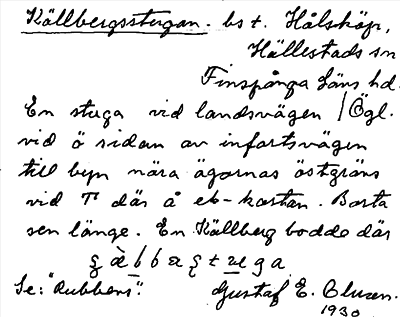 Källbergsstugan. bs t. Hålsköp,
Hällestads sn
Finspånga läns hd.
En stuga vid landsvägen / Ögl.
vid ö sidan av infartsvägen
till byn nära ägornas östgräns
vid T där å ek-kartan. Borta
sen länge. En Källberg bodde där
Se: "Rubbens". Gustaf E. Clusen.
1930